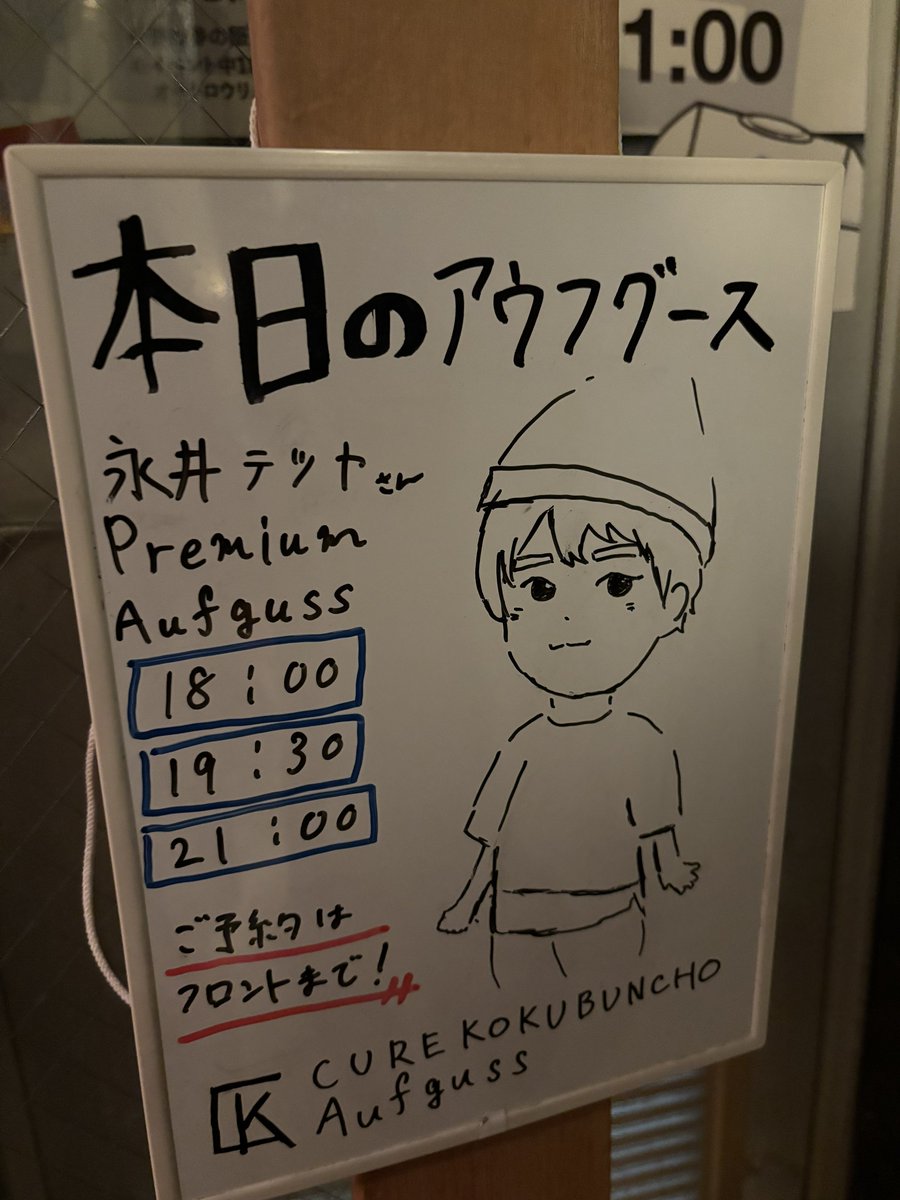 1:00
本日のアウフグース
永井テットさん
Premium
Aufguss
18:00
19:30
21:00
ご予約は
フロントまで!
CK CURE KOKUBUNCHO
Aufguss